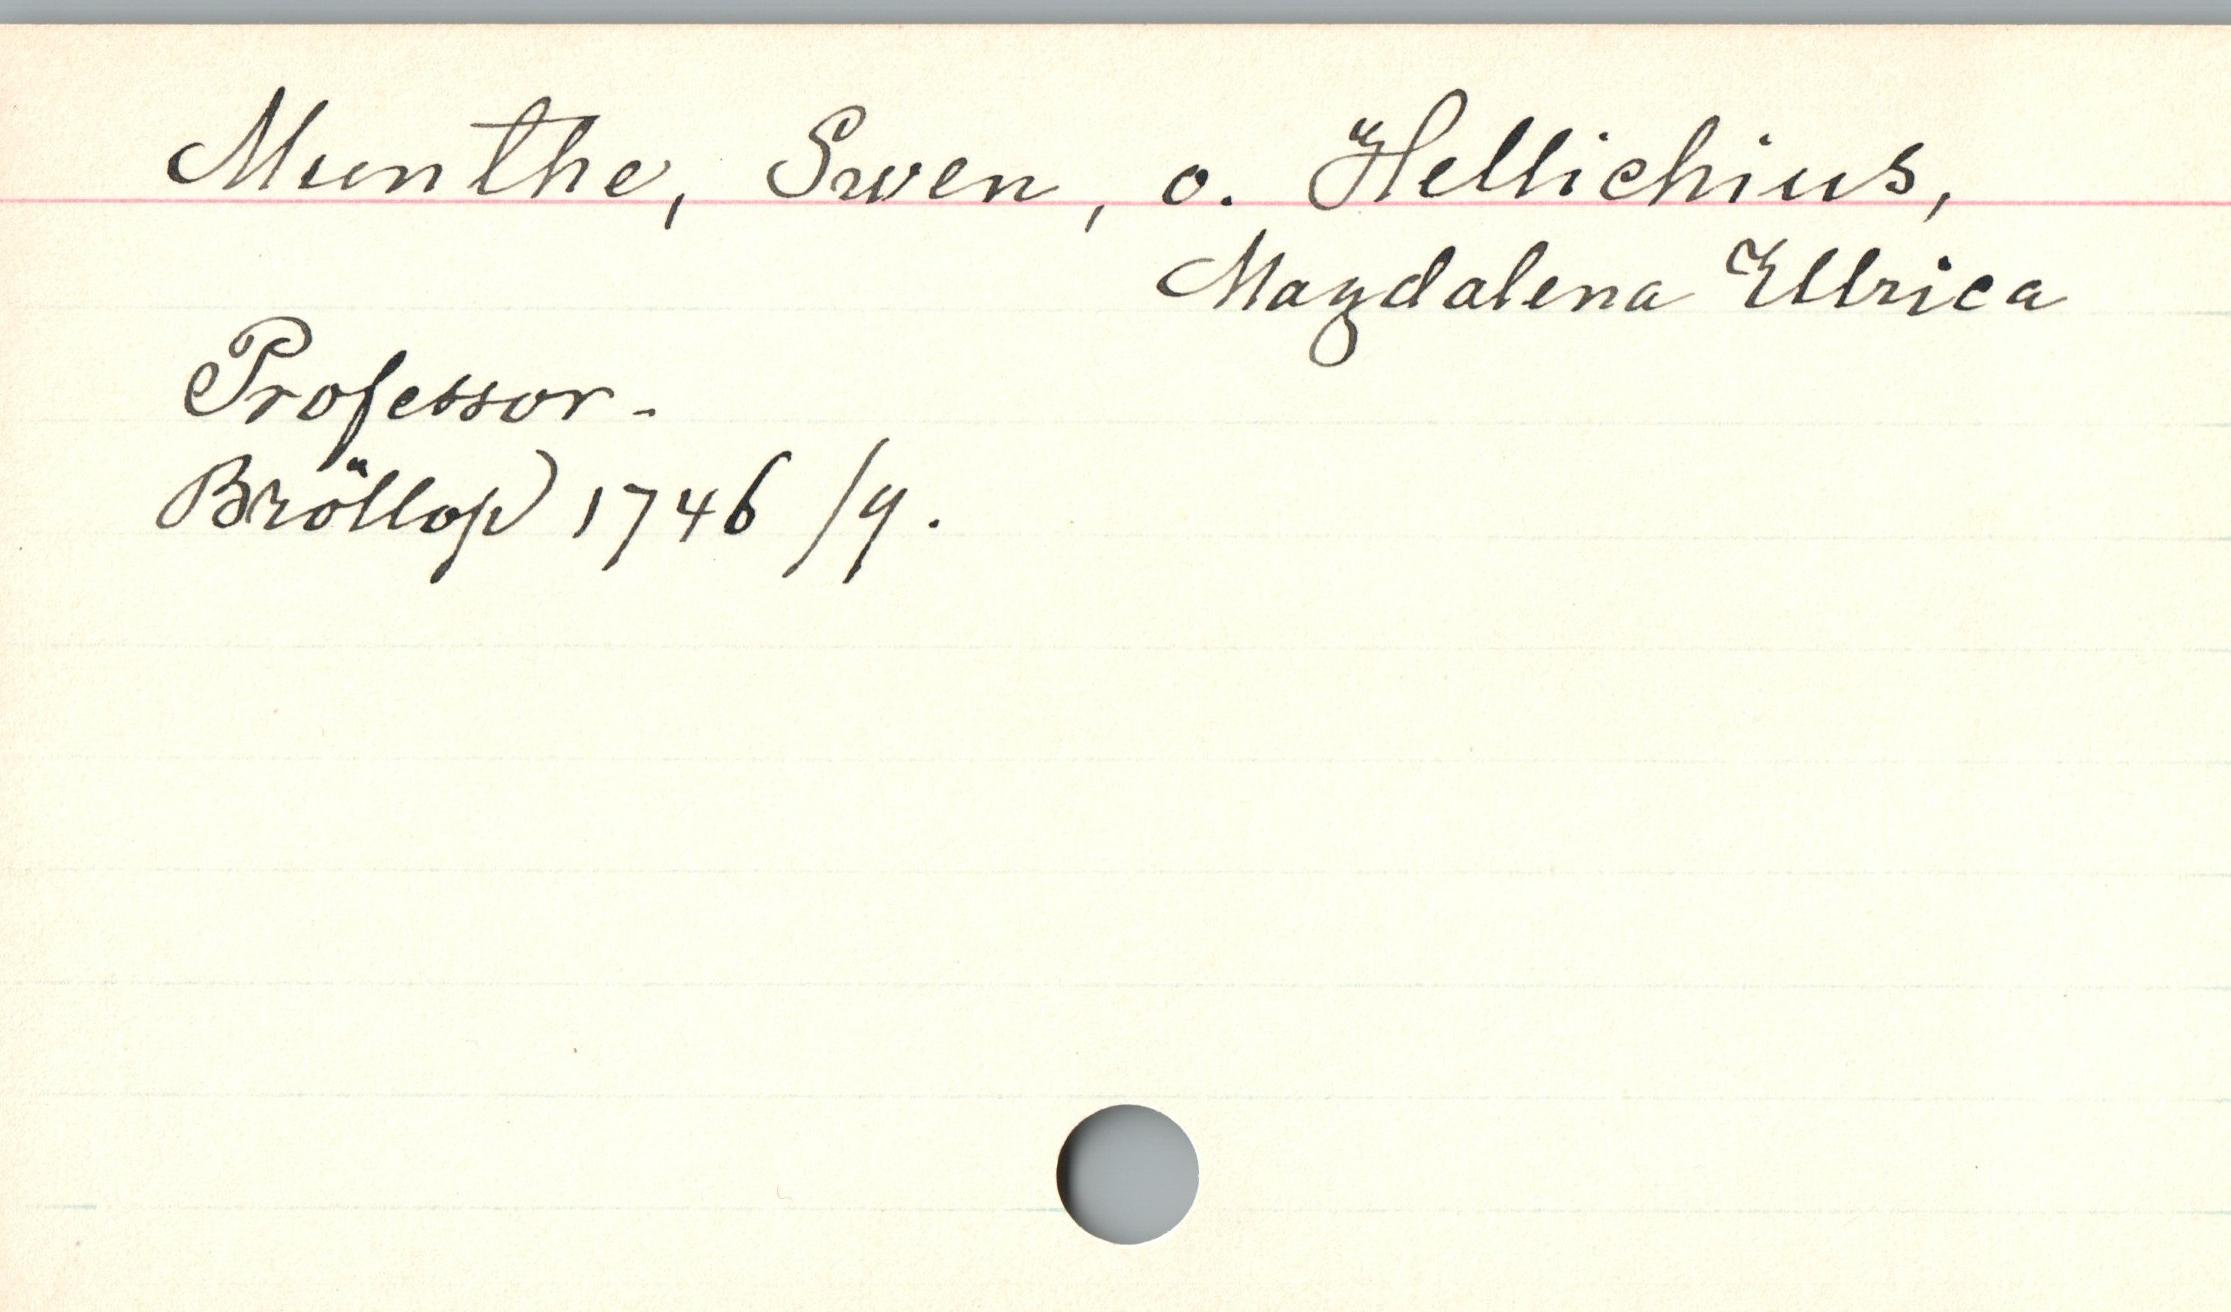 Munthe, Swen, o. Hellichius,
Magdalena Ellrica
Professor.
Bröllop 1746 /9.